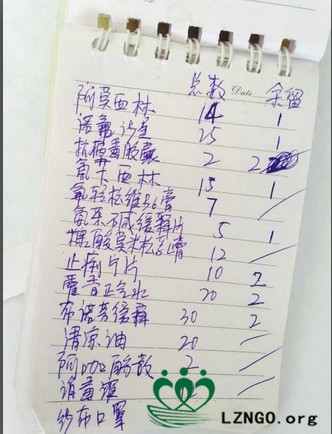 总数 Date 余留
阿莫西林 14 1
诺氟沙星 25 1
抗病毒胶囊 2 2
氨卡西林 15 1
氟轻松维B6膏 7 /
氨茶碱缓释片 5 1
糠酸莫米松乳膏 12 /
止痢片 10 2
藿香正气水 20 2
布洛芬缓释 30 2
清凉油 20 /
阿咖酚散 2 /
消毒液 /
纱布口罩
LZNGO.org